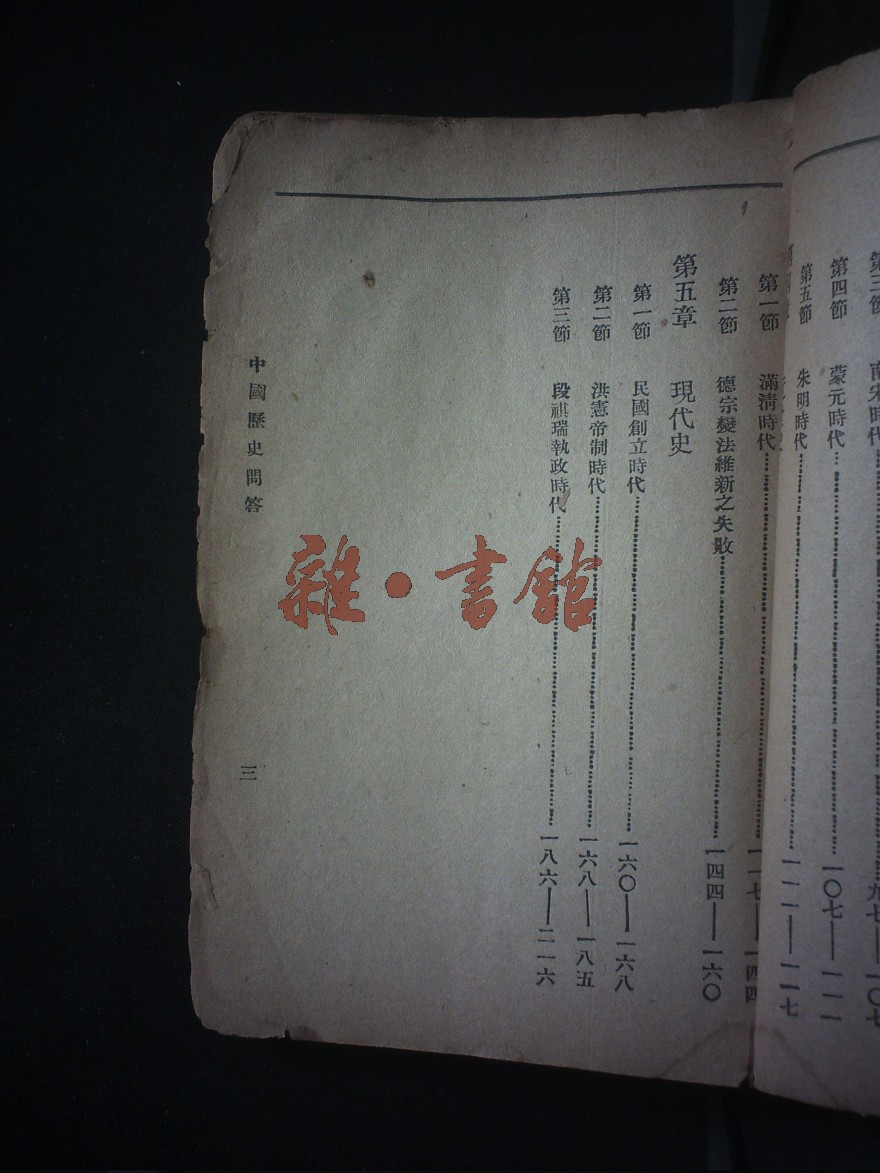 第三節 南宋時代……九七—一〇七
第四節 蒙元時代……一〇七—一一一
第五節 朱明時代……一一一—一一七
第一節 滿清時代……一一七—一四四
第二節 德宗變法維新之失敗……一四四—一六〇
第五章 現代史
第一節 民國創立時代……一六〇—一六八
第二節 洪憲帝制時代……一六八—一八五
第三節 段祺瑞執政時代……一八六—二一六
中國歷史問答
三
雜·書館